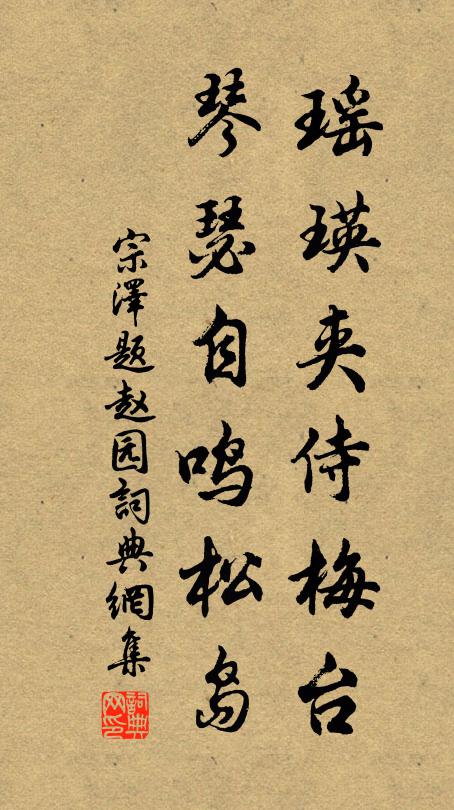 瑶瑛夹侍梅台
琴瑟自鸣松岛
宗澤题赵园詞典網集
詞典网印